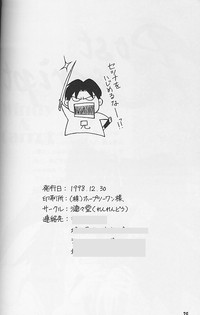 セツナを
いじめるなーッ!!
兄
発行日：1998.12.30
印刷所：(株)ホープツーワン様
サークル：漣々堂(れんれんどう)
連絡先：
25